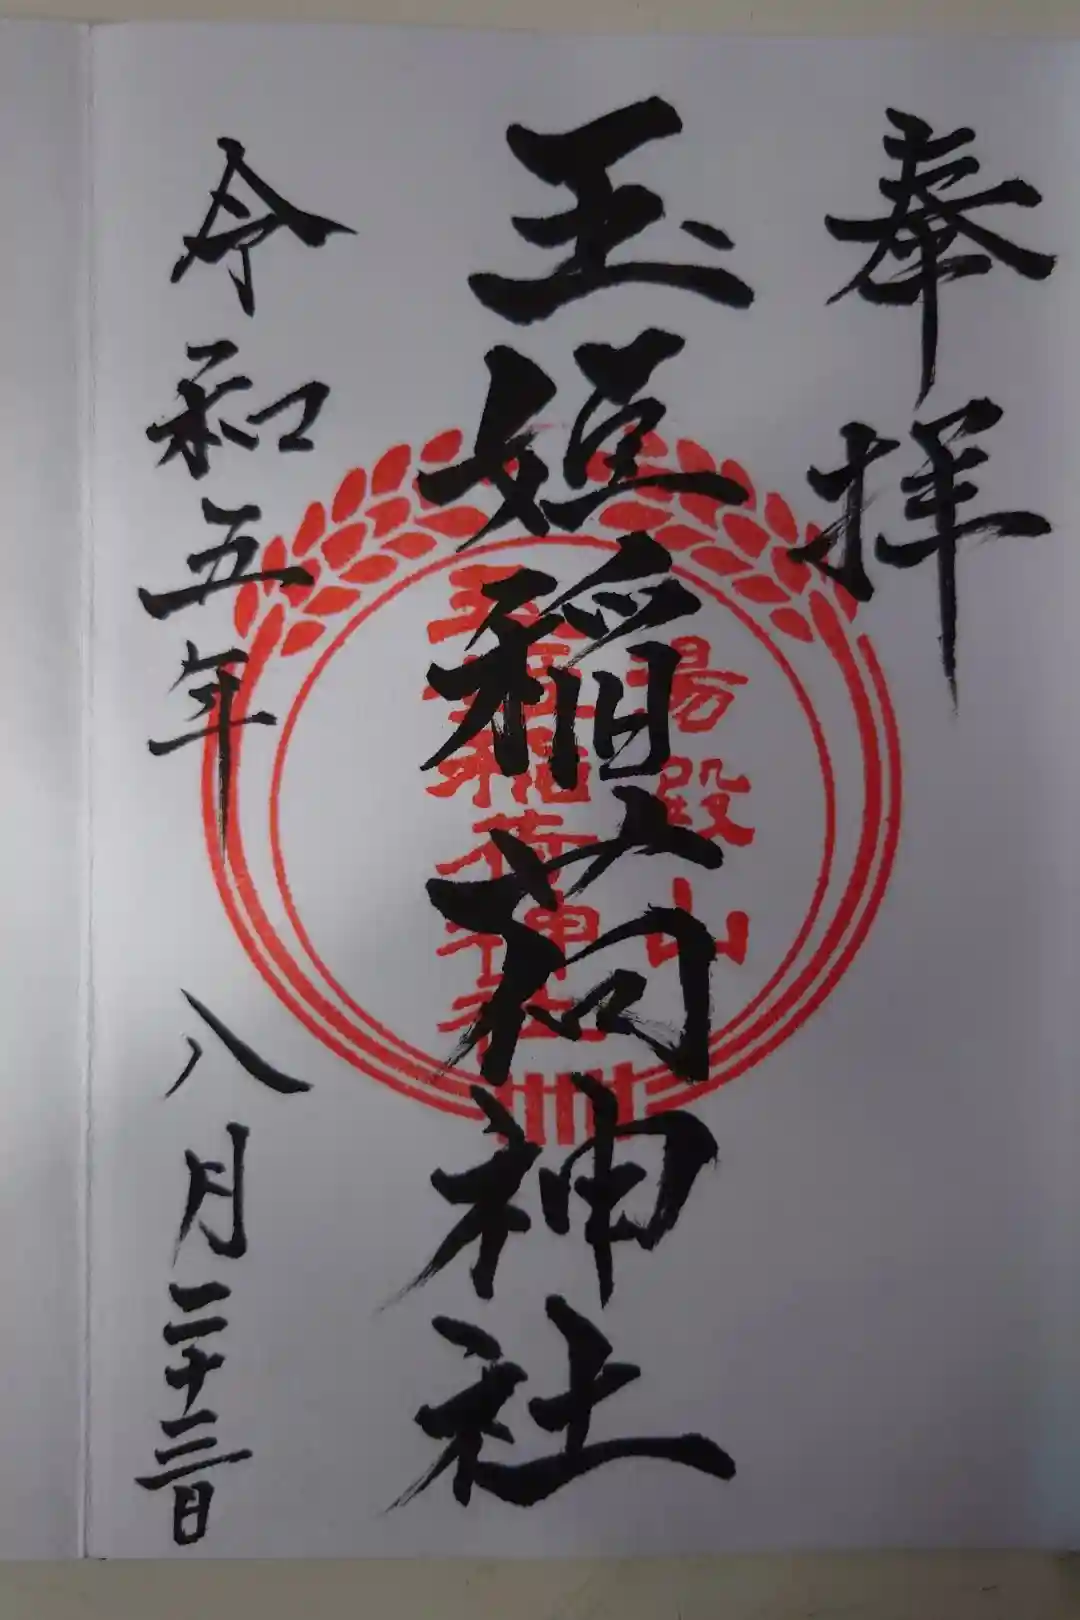 奉拝
玉姫稲荷神社
令和五年 八月二十三日
湯殿山
玉姫稲荷神社